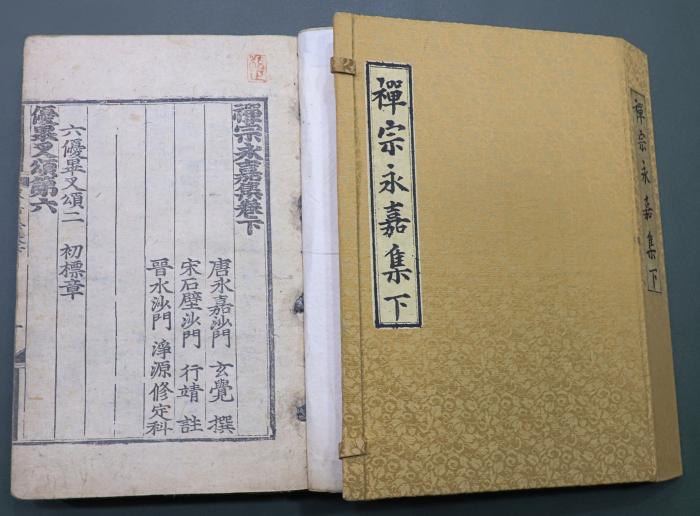 禪宗永嘉集下
禪宗永嘉集下
禪宗永嘉集卷下
唐永嘉沙門 玄覺 撰
宋石壁沙門 行靖 註
晉水沙門 淨源修定科
六優畢叉頌二 初標章
優畢叉頌第六